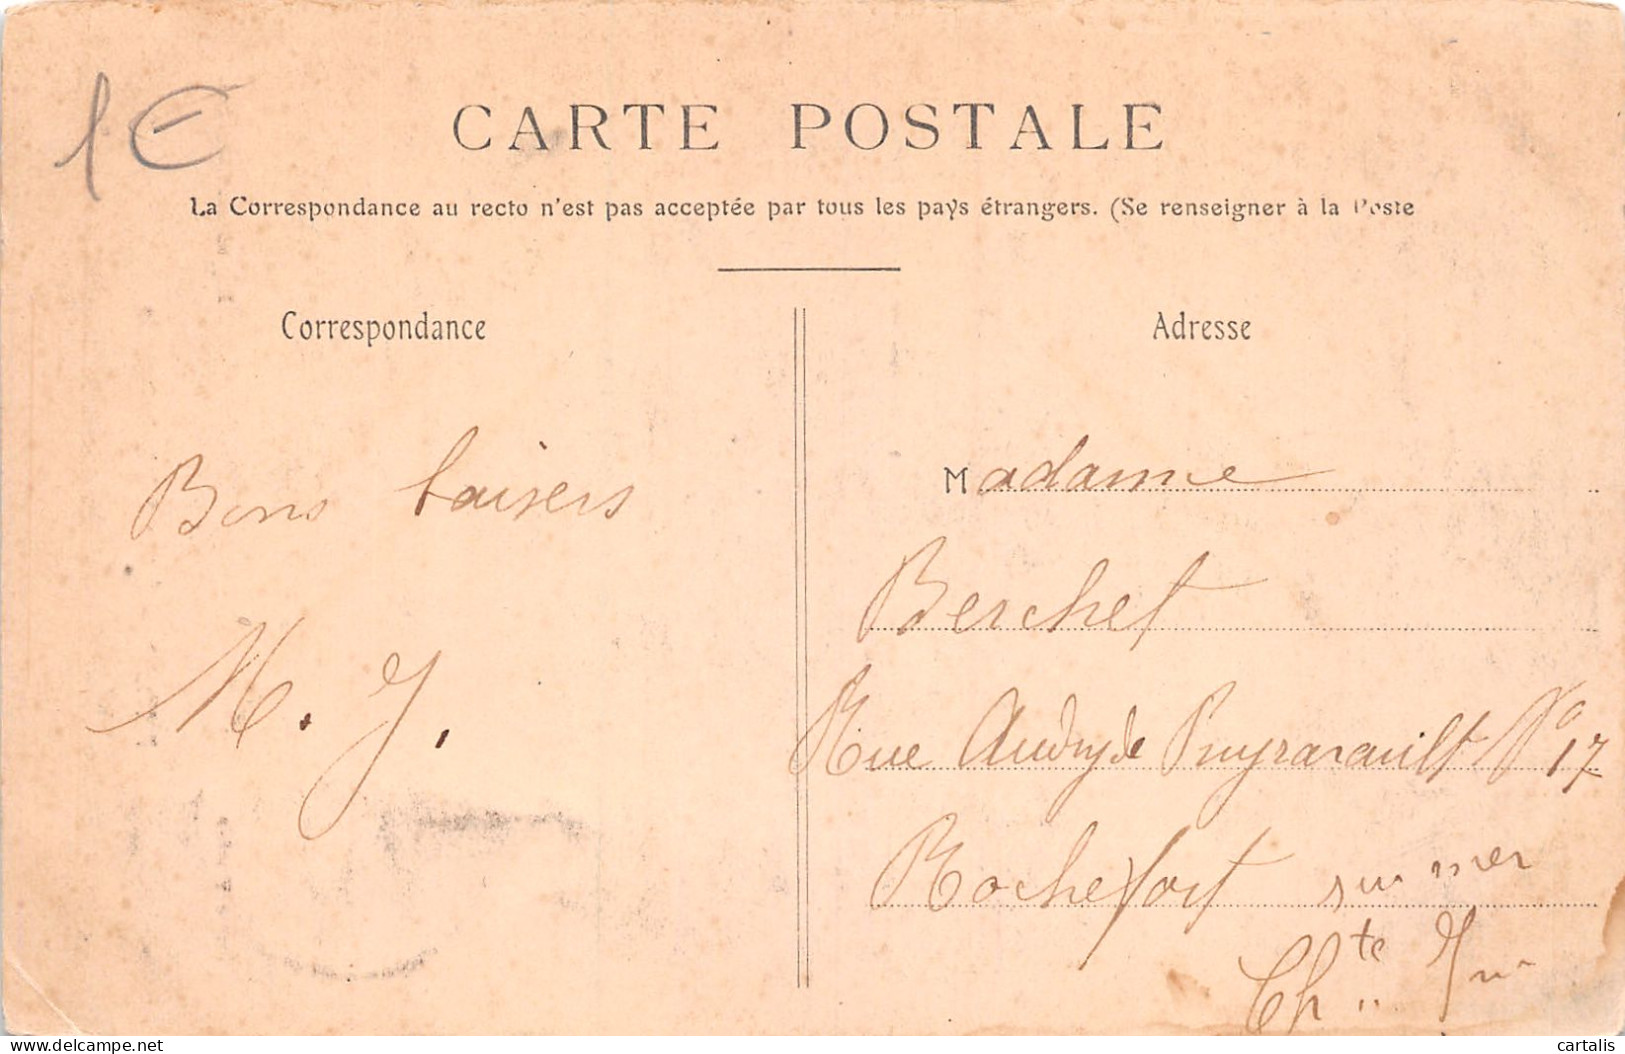 1€
CARTE POSTALE
La Correspondance au recto n'est pas acceptée par tous les pays étrangers. (Se renseigner à la Poste
Correspondance
Adresse
Bons baisers
M. J.
Madame
Berchet
Rue Audry de Puyravault N° 17
Rochefort sur mer
Chte Infre
delcampe.net
cartalis